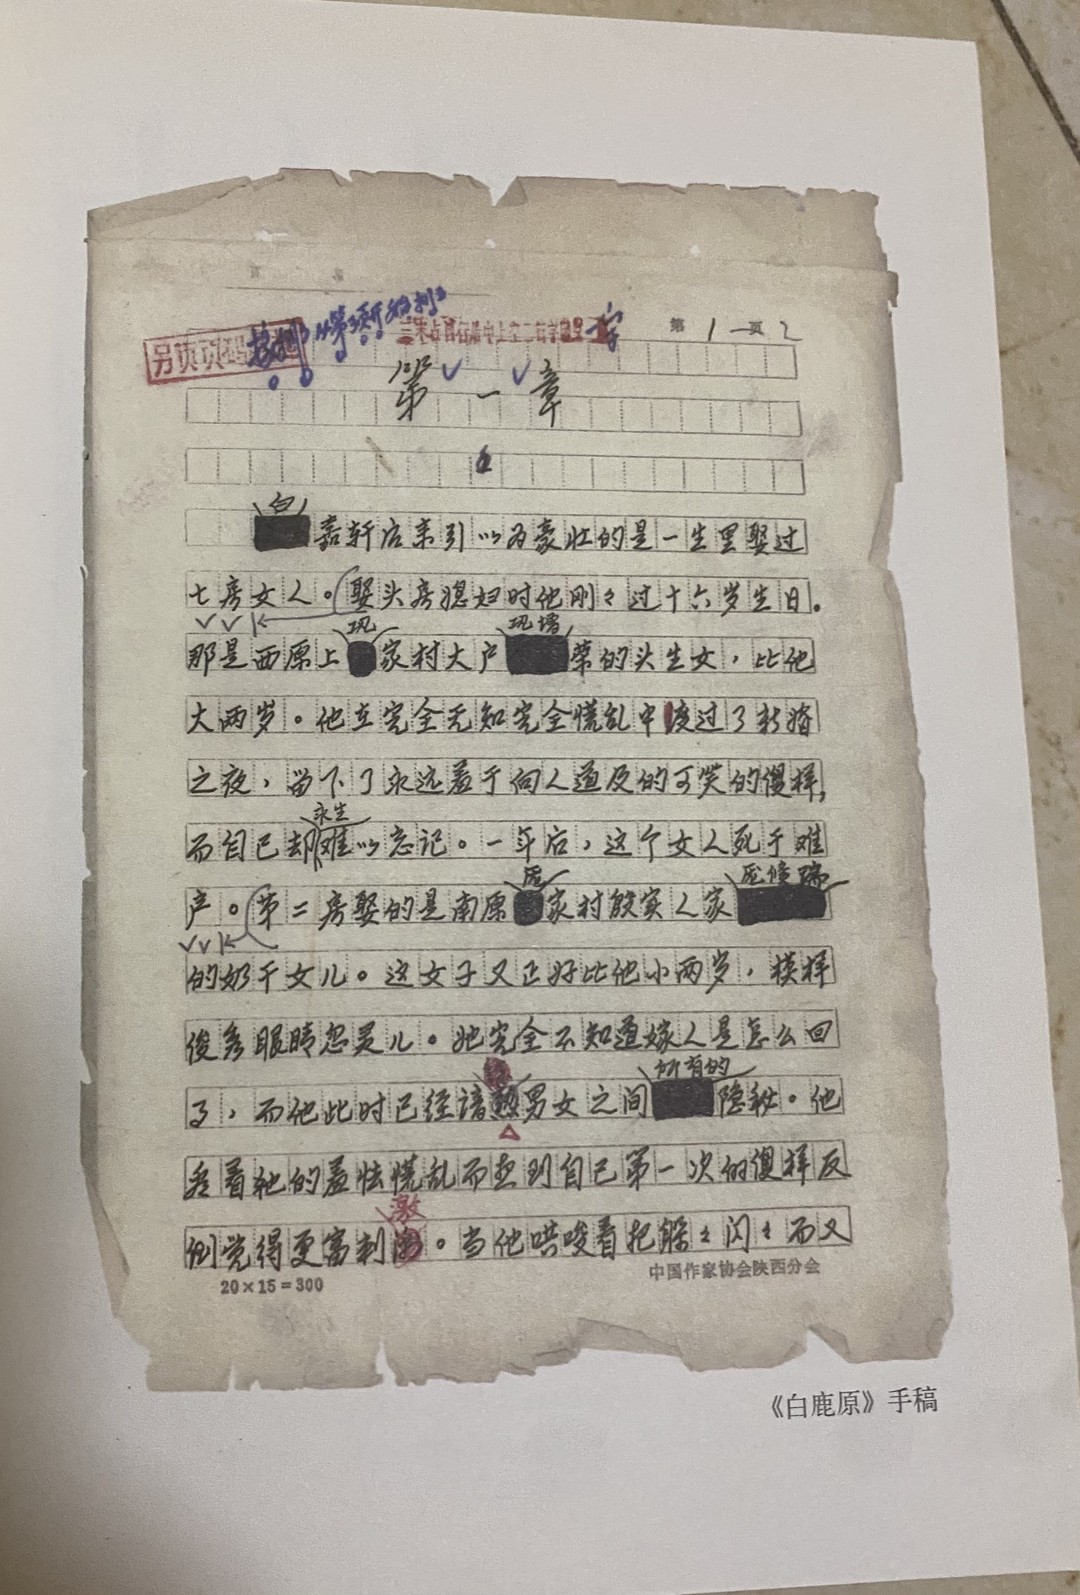 另页
第1页2
第一章
白
嘉轩后来引以为豪壮的是一生里娶过
七房女人。娶头房媳妇时他刚々过十六岁生日。
巩 巩增
那是西原上家村大户荣的头生女，比他
大两岁。他在完全无知完全慌乱中度过了新婚
之夜，留下了永远羞于向人道及的可笑的傻样，
永生
而自己却难以忘记。一年后，这个女人死于难
庞 庞修瑞
产。第二房娶的是南原家村殷实人家
的奶干女儿。这女子又正好比他小两岁，模样
俊秀眼睛忽灵儿。她完全不知道嫁人是怎么回
所有的
了，而他此时已经谙熟男女之间隐秘。他
看着她的羞怯慌乱而想到自己第一次的傻样反
激
倒觉得更富刺。当他哄唆着把躲々闪々而又
20×15=300
中国作家协会陕西分会
《白鹿原》手稿